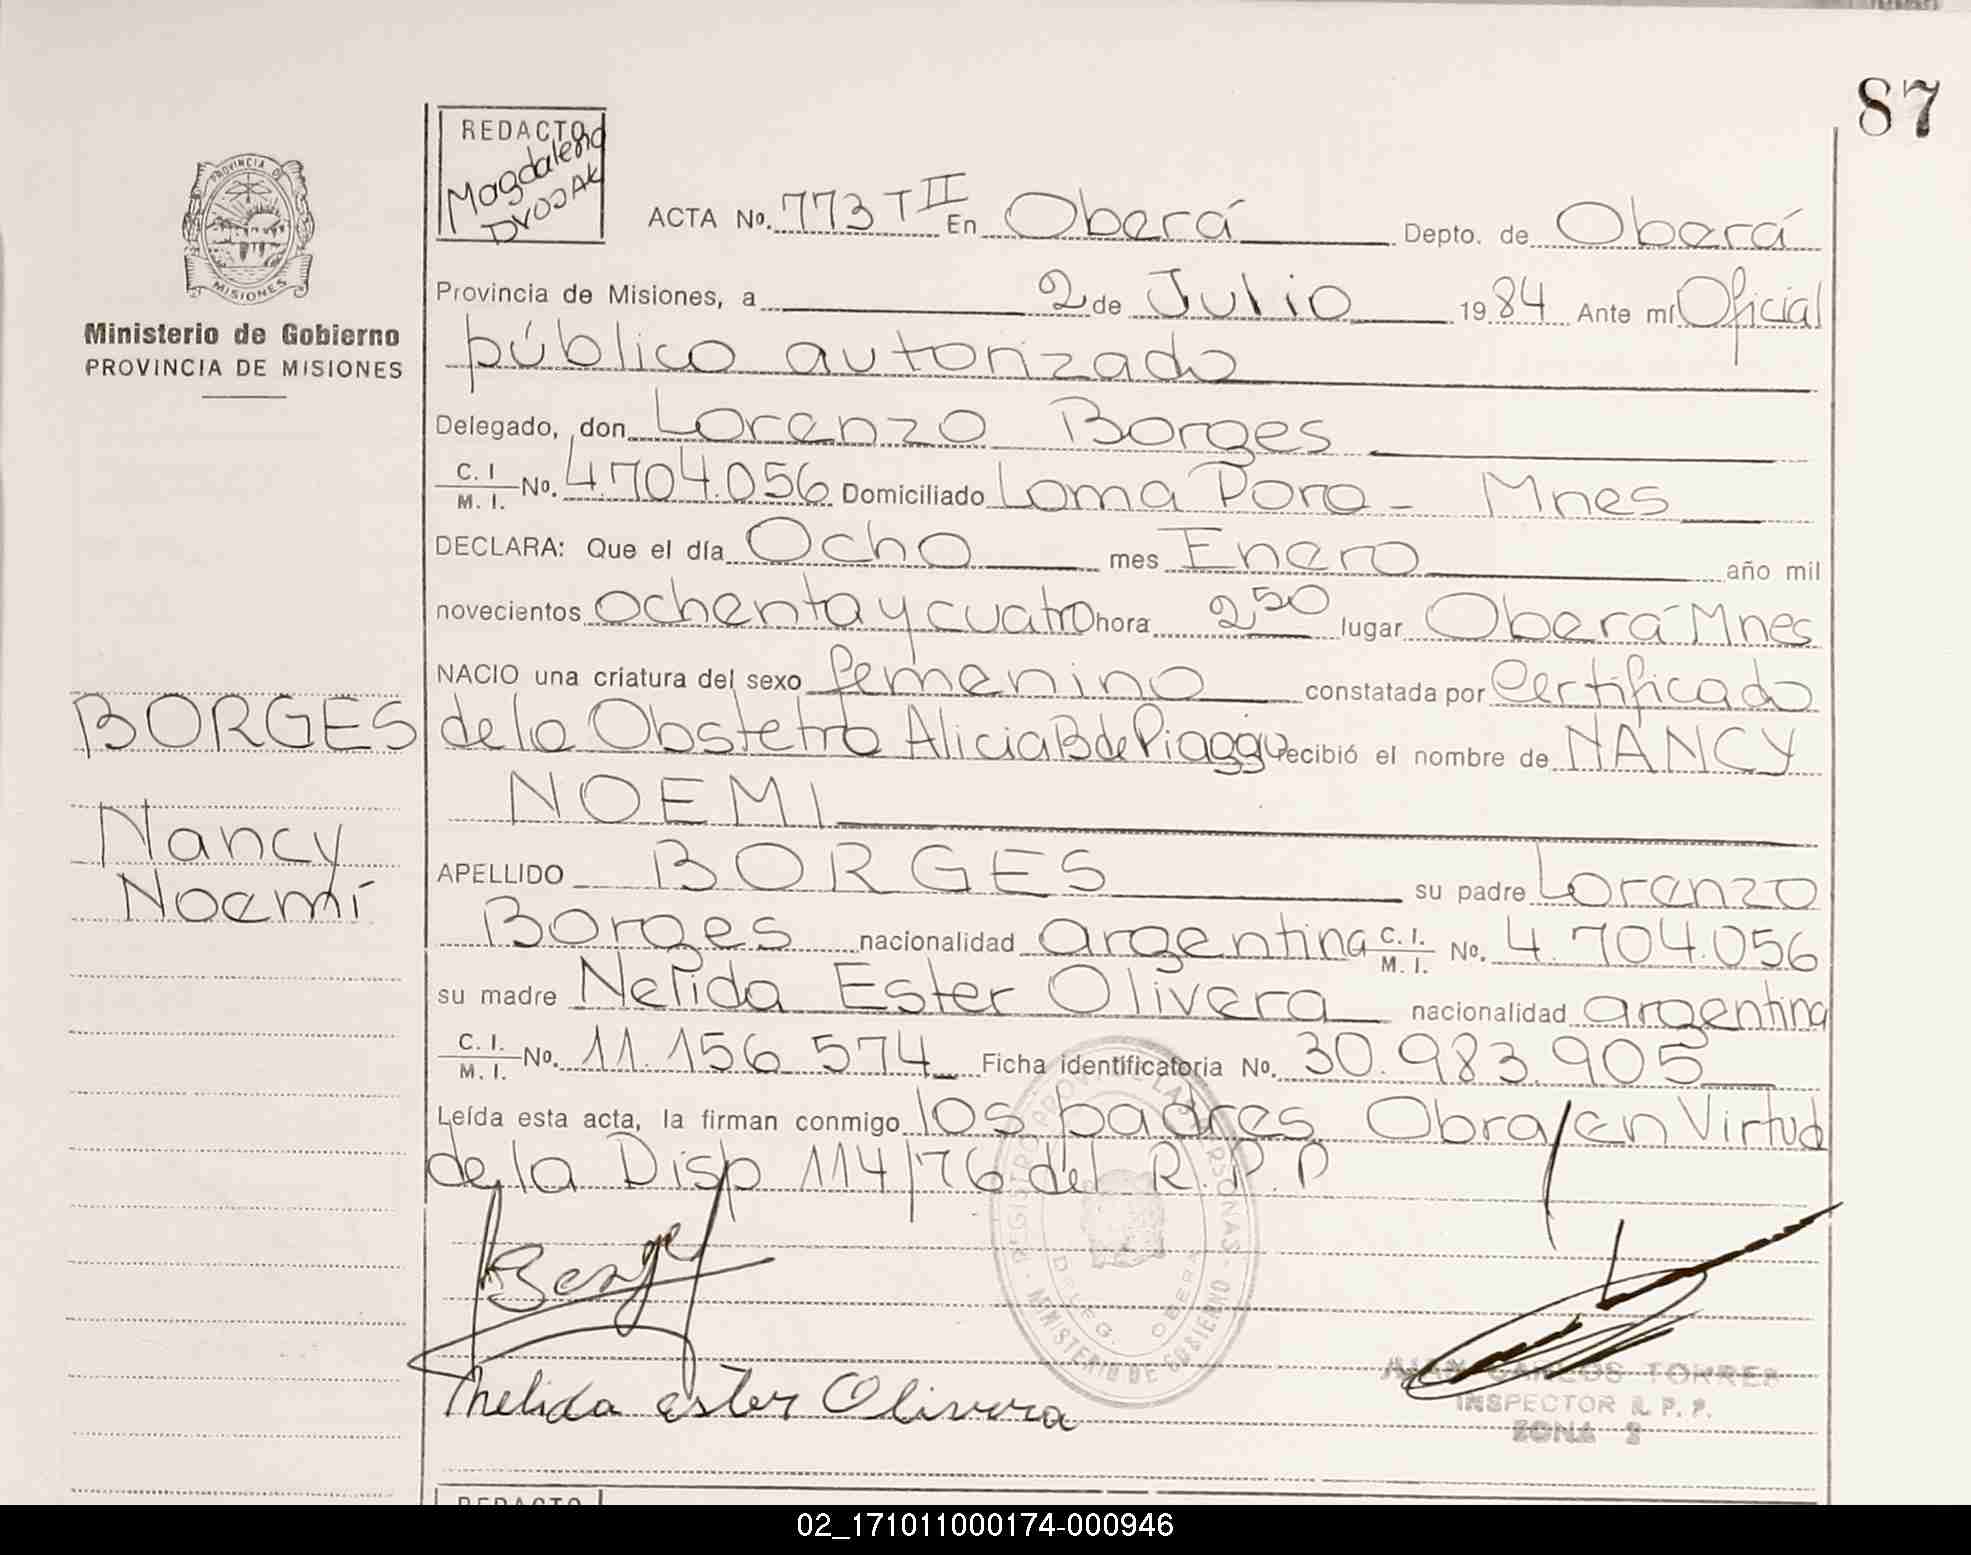 87
REDACTO
Magdalena
DVOJAK
PROVINCIA DE
MISIONES
Ministerio de Gobierno
PROVINCIA DE MISIONES
ACTA No. 773 T II En Oberá Depto. de Oberá
Provincia de Misiones, a 2 de Julio 1984 Ante mí Oficial
público autorizado
Delegado, don Lorenzo Borges
C. I. / M. I. No. 4.704.056 Domiciliado Loma Pora - Mnes
DECLARA: Que el día Ocho mes Enero año mil
novecientos ochenta y cuatro hora 2 50 lugar Oberá Mnes
NACIO una criatura del sexo femenino constatada por Certificado
de la Obstetra Alicia B de Piaggu recibió el nombre de NANCY
NOEMI
BORGES
Nancy
Noemí
APELLIDO BORGES su padre Lorenzo
Borges nacionalidad argentina C. I. / M. I. No. 4.704.056
su madre Nelida Ester Olivera nacionalidad argentina
C. I. / M. I. No. 11.156.574 Ficha identificatoria No. 30.983.905
Leída esta acta, la firman conmigo los padres Obra/en Virtud
de la Disp 114/76 del R.P.P
REGISTRO PROV. DE LAS PERSONAS
DELEG. OBERA
MINISTERIO DE GOBIERNO
Borges
Thelida ester Olivera
JUAN CARLOS TORRES
INSPECTOR R. P. P.
ZONA 2
REDACTO
02_171011000174-000946